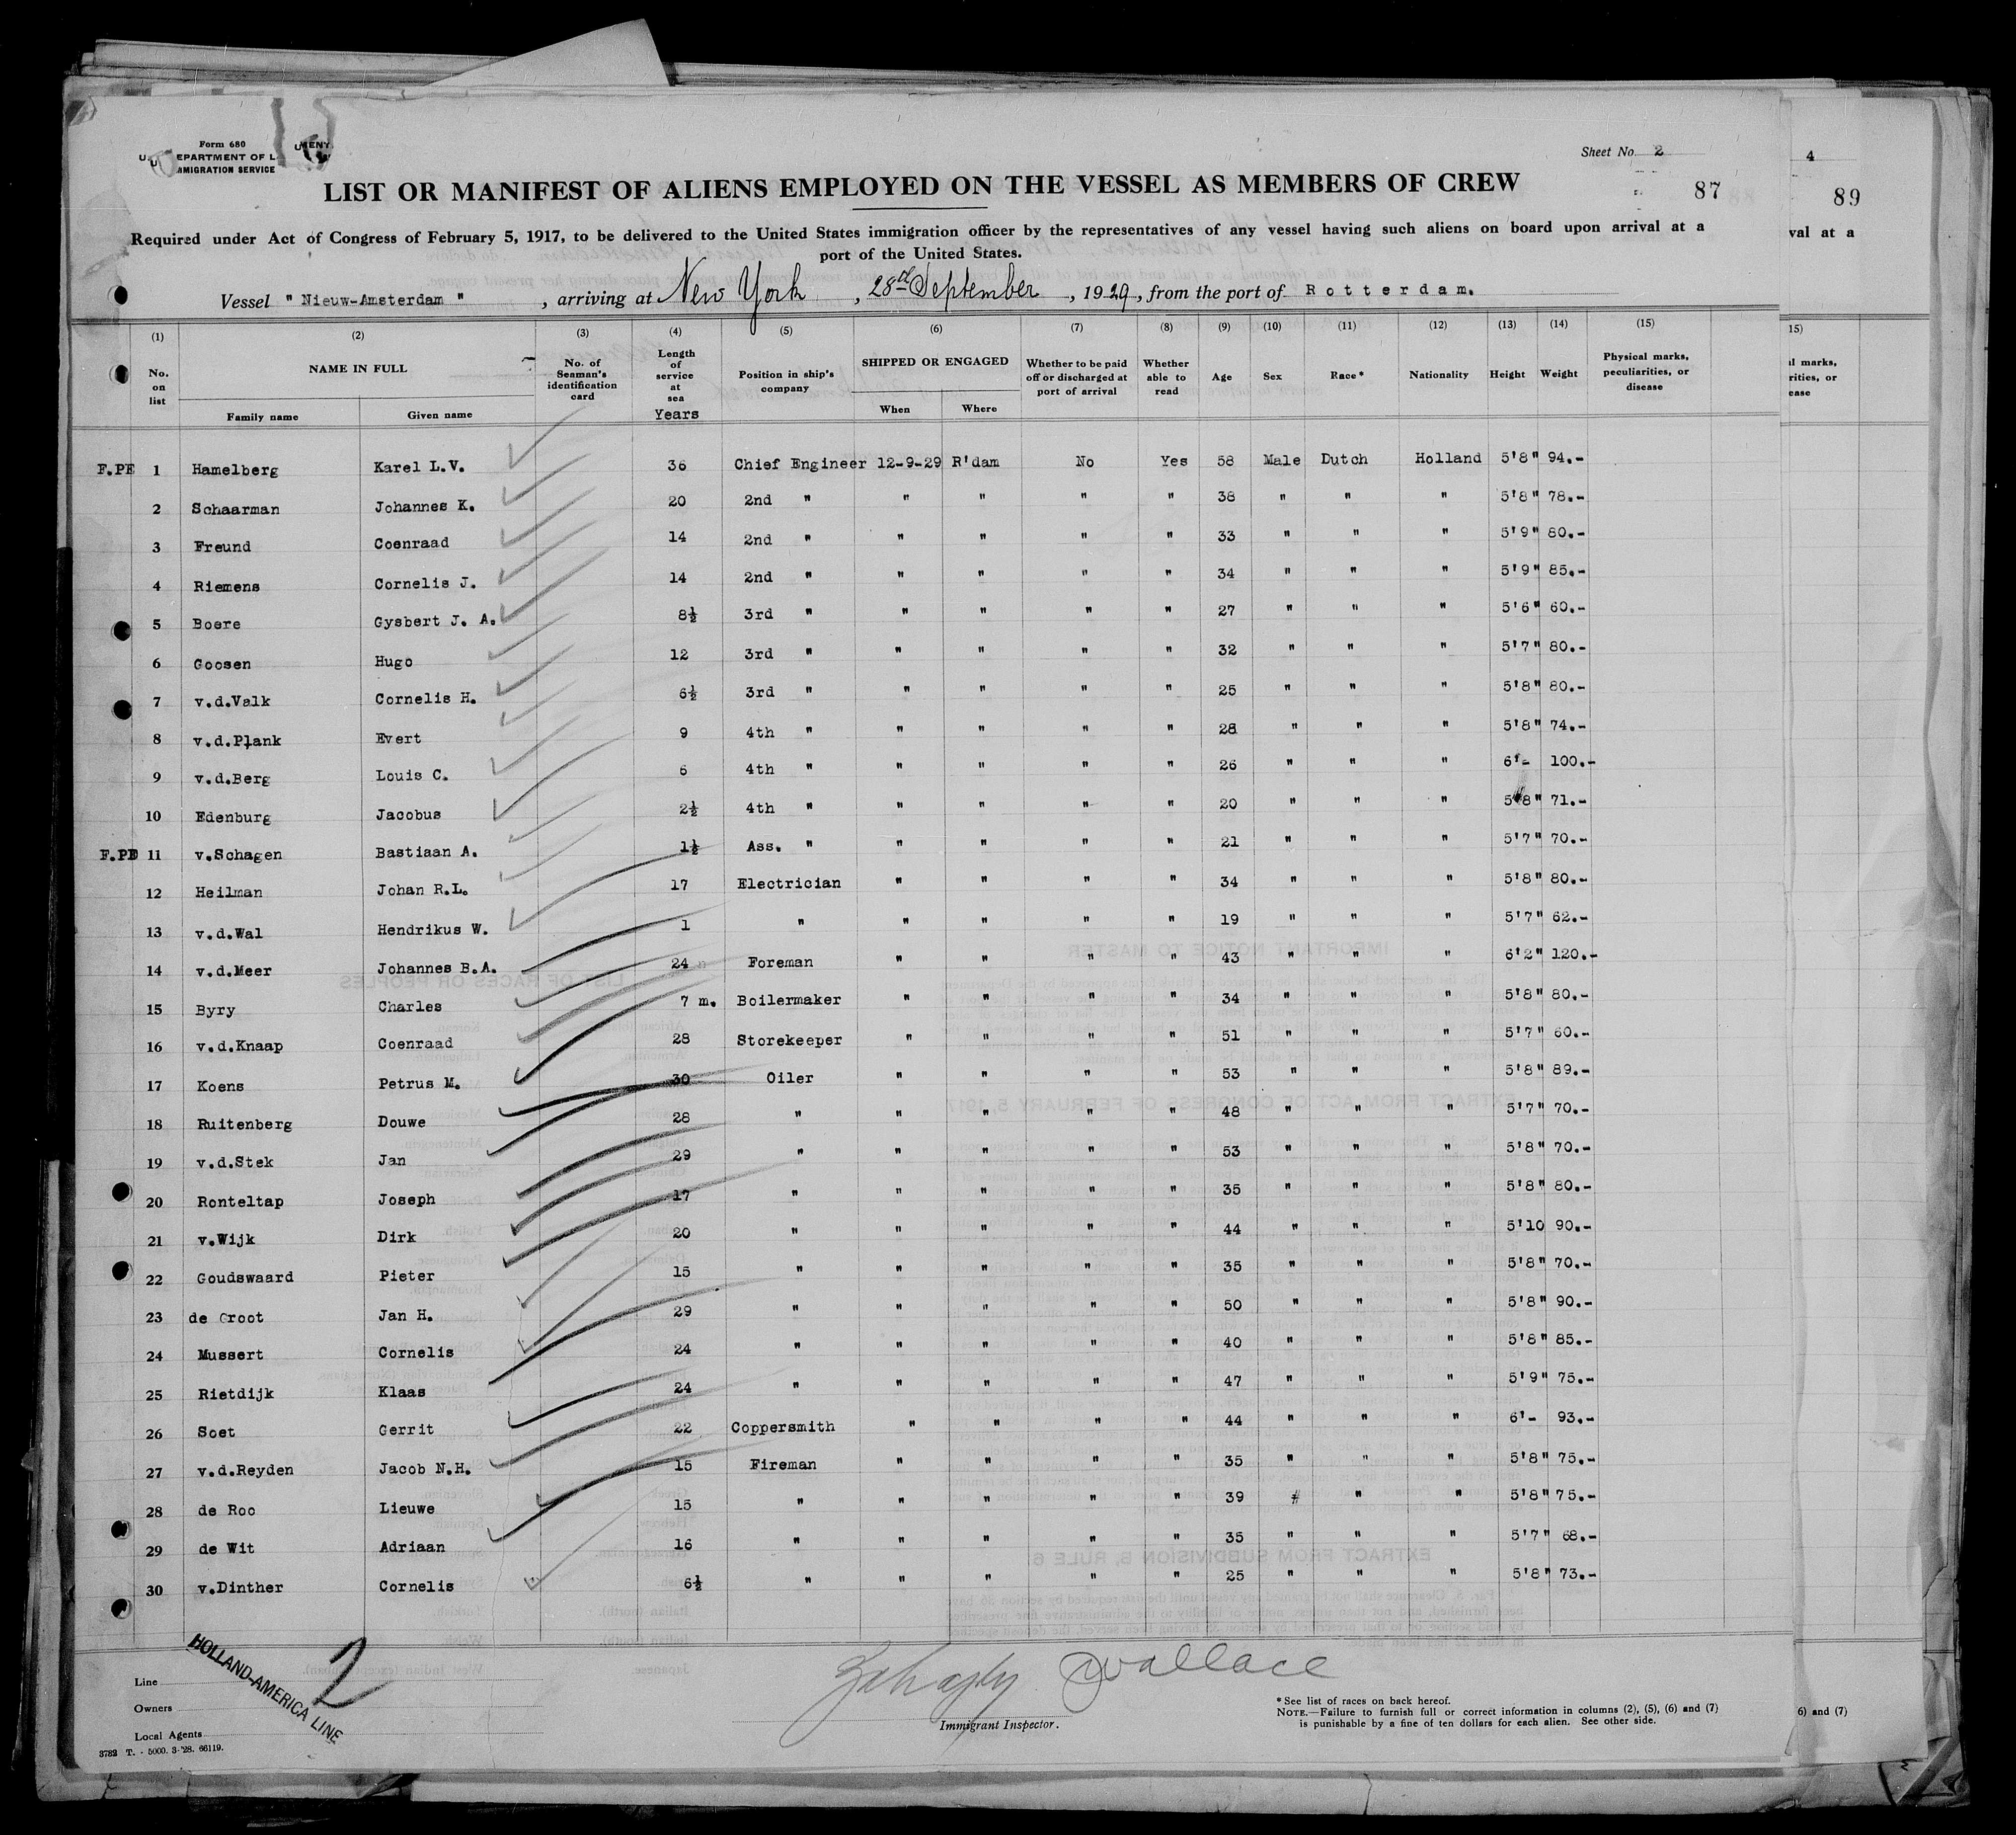 Form 680
EPARTMENT OF L
IMMIGRATION SERVICE
Sheet No. 2
87
LIST OR MANIFEST OF ALIENS EMPLOYED ON THE VESSEL AS MEMBERS OF CREW
Required under Act of Congress of February 5, 1917, to be delivered to the United States immigration officer by the representatives of any vessel having such aliens on board upon arrival at a
port of the United States.
Vessel " Nieuw-Amsterdam ", arriving at New York, 28th September, 1929, from the port of Rotterdam.
(1) (2) (3) (4) (5) (6) (7) (8) (9) (10) (11) (12) (13) (14) (15)
No. on list NAME IN FULL Family name Given name No. of Seaman's identification card Length of service at sea Years Position in ship's company SHIPPED OR ENGAGED When Where Whether to be paid off or discharged at port of arrival Whether able to read Age Sex Race* Nationality Height Weight Physical marks, peculiarities, or disease
F.PE 1 Hamelberg Karel L.V. 36 Chief Engineer 12-9-29 R'dam No Yes 58 Male Dutch Holland 5'8" 94.-
2 Schaarman Johannes K. 20 2nd " " " " " 38 " " " 5'8" 78.-
3 Freund Coenraad 14 2nd " " " " " 33 " " " 5'9" 80.-
4 Riemens Cornelis J. 14 2nd " " " " " 34 " " " 5'9" 85.-
5 Boere Gysbert J. A. 8½ 3rd " " " " " 27 " " " 5'6" 60.-
6 Goosen Hugo 12 3rd " " " " " 32 " " " 5'7" 80.-
7 v.d.Valk Cornelis H. 6½ 3rd " " " " " 25 " " " 5'8" 80.-
8 v.d.Plank Evert 9 4th " " " " " 28 " " " 5'8" 74.-
9 v.d.Berg Louis C. 6 4th " " " " " 26 " " " 6'- 100.-
10 Edenburg Jacobus 2½ 4th " " " " " 20 " " " 5'8" 71.-
F.PE 11 v.Schagen Bastiaan A. 1½ Ass. " " " " " 21 " " " 5'7" 70.-
12 Heilman Johan R.L. 17 Electrician " " " " 34 " " " 5'8" 80.-
13 v.d.Wal Hendrikus W. 1 " " " " " 19 " " " 5'7" 62.-
14 v.d.Meer Johannes B.A. 24 Foreman " " " " 43 " " " 6'2" 120.-
15 Byry Charles 7 m. Boilermaker " " " " 34 " " " 5'8" 80.-
16 v.d.Knaap Coenraad 28 Storekeeper " " " " 51 " " " 5'7" 60.-
17 Koens Petrus M. 30 Oiler " " " " 53 " " " 5'8" 89.-
18 Ruitenberg Douwe 28 " " " " " 48 " " " 5'7" 70.-
19 v.d.Stek Jan 29 " " " " " 53 " " " 5'8" 70.-
20 Ronteltap Joseph 17 " " " " " 35 " " " 5'8" 80.-
21 v.Wijk Dirk 20 " " " " " 44 " " " 5'10 90.-
22 Goudswaard Pieter 15 " " " " " 35 " " " 5'8" 70.-
23 de Groot Jan H. 29 " " " " " 50 " " " 5'8" 90.-
24 Mussert Cornelis 24 " " " " " 40 " " " 5'8" 85.-
25 Rietdijk Klaas 24 " " " " " 47 " " " 5'9" 75.-
26 Soet Gerrit 22 Coppersmith " " " " 44 " " " 6'- 93.-
27 v.d.Reyden Jacob N.H. 15 Fireman " " " " 35 " " " 5'8" 75.-
28 de Roo Lieuwe 15 " " " " " 39 " " " 5'8" 75.-
29 de Wit Adriaan 16 " " " " " 35 " " " 5'7" 68.-
30 v.Dinther Cornelis 6½ " " " " " 25 " " " 5'8" 73.-
Line
Owners
Local Agents
HOLLAND-AMERICA LINE
2
3782 T. - 5000. 3-'28. 66119.
Wallace
Immigrant Inspector.
*See list of races on back hereof.
NOTE.—Failure to furnish full or correct information in columns (2), (5), (6) and (7)
is punishable by a fine of ten dollars for each alien. See other side.
4
89
val at a
15)
l marks,
rities, or
ease
6) and (7)